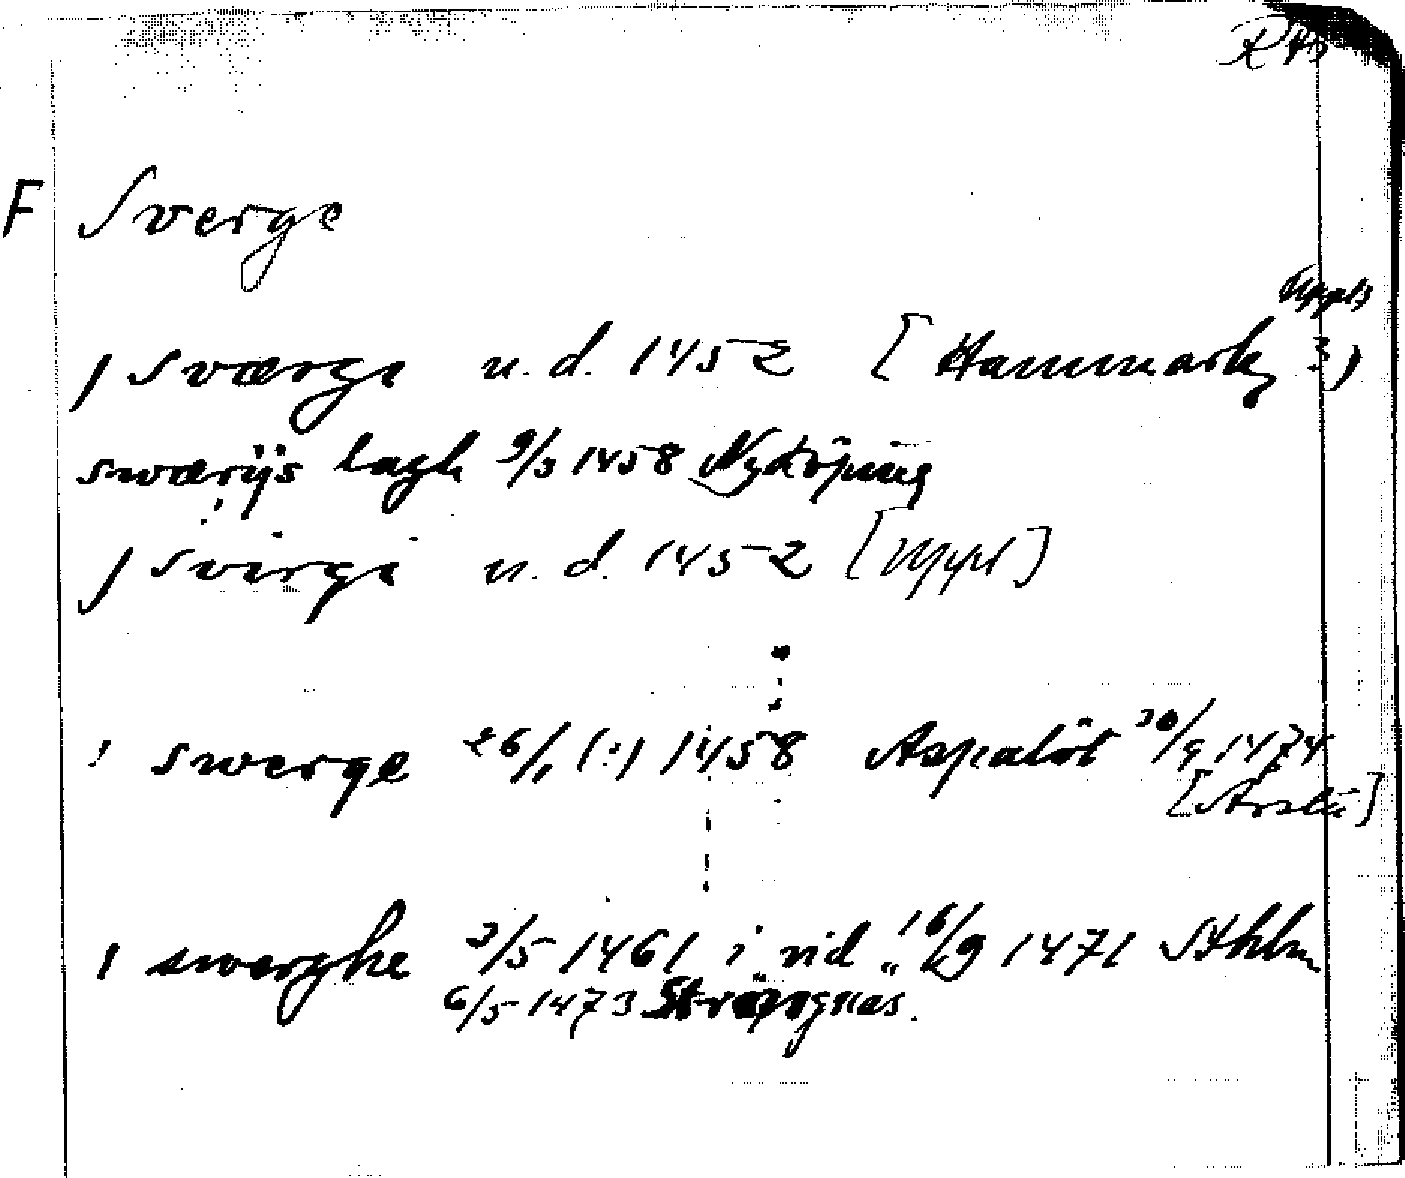 F Sverge
j Sværge u. d. 1452 [Hammark
Uppl
swærijs lagh 9/3 1458 Nyköping
j Svirge u. d. 1452 [Uppl]
i swerge 26/1 (?) 1458 Aspalöt 30/9 1474
i swerghe 3/5 1461 i rid 16/9 1471 Sthlm
6/5 1473 Strängnäs.